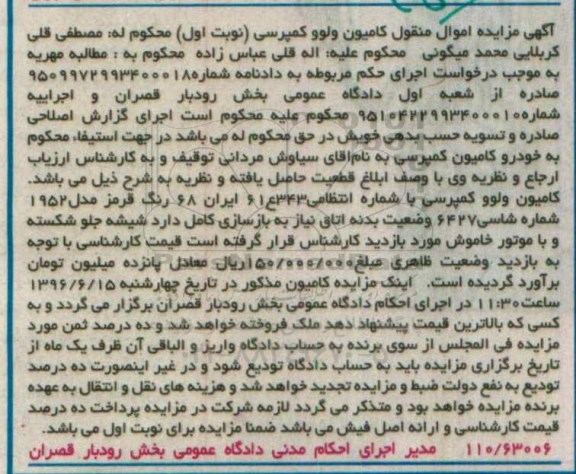 آگهی مزایده اموال منقول کامیون ولوو کمپرسی (نوبت اول) محکوم له: مصطفی قلی
کربلایی محمد میگونی محکوم علیه: اله قلی عباس زاده محکوم به : مطالبه مهریه
به موجب درخواست اجرای حکم مربوطه به دادنامه شماره۹۵۰۹۹۷۲۹۹۳۴۰۰۰۱۸
صادره از شعبه اول دادگاه عمومی بخش رودبار قصران و اجراییه
شماره۹۵۱۰۴۲۲۹۹۳۴۰۰۰۱۰ محکوم علیه محکوم است اجرای گزارش اصلاحی
صادره و تسویه حسب بدهی خویش در حق محکوم له می باشد در جهت استیفاء محکوم
به خودرو کامیون کمپرسی به نام‌آقای سیاوش مردانی توقیف و به کارشناس ارزیاب
ارجاع و نظریه وی با وصف ابلاغ قطعیت حاصل یافته و نظریه به شرح ذیل می باشد.
کامیون ولوو کمپرسی با شماره انتظامی۳۴۳ع۶۱ ایران ۶۸ رنگ قرمز مدل۱۹۵۲
شماره شاسی۶۴۲۷ وضعیت بدنه اتاق نیاز به بازسازی کامل دارد شیشه جلو شکسته
و با موتور خاموش مورد بازدید کارشناس قرار گرفته است قیمت کارشناسی با توجه
به بازدید وضعیت ظاهری مبلغ۱۵۰/۰۰۰/۰۰۰ریال معادل پانزده میلیون تومان
برآورد گردیده است. اینک مزایده کامیون مذکور در تاریخ چهارشنبه ۱۳۹۶/۶/۱۵
ساعت۱۱:۳۰ در اجرای احکام دادگاه عمومی بخش رودبار قصران برگزار می گردد و به
کسی که بالاترین قیمت پیشنهاد دهد ملک فروخته خواهد شد و ده درصد ثمن مورد
مزایده فی المجلس از سوی برنده به حساب دادگاه واریز و الباقی آن ظرف یک ماه از
تاریخ برگزاری مزایده باید به حساب دادگاه تودیع شود و در غیر اینصورت ده درصد
تودیع به نفع دولت ضبط و مزایده تجدید خواهد شد و هزینه های نقل و انتقال به عهده
برنده مزایده خواهد بود و متذکر می گردد لازمه شرکت در مزایده پرداخت ده درصد
قیمت کارشناسی و ارائه اصل فیش می باشد ضمنا مزایده برای نوبت اول می باشد.
۱۱۰/۶۳۰۰۶ مدیر اجرای احکام مدنی دادگاه عمومی بخش رودبار قصران